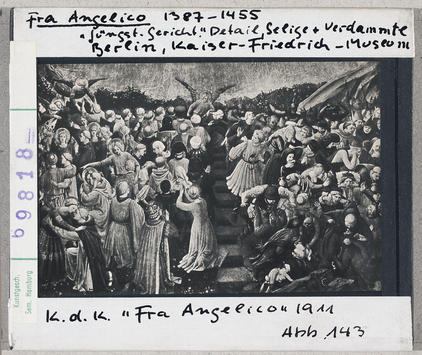 Fra Angelico 1387-1455
"Jüngst. Gericht." Detail, Selige + Verdammte
Berlin, Kaiser-Friedrich-Museum
69818
Kunstgesch.
Sem. Hamburg
K.d.K. "Fra Angelico" 1911
Abb. 143